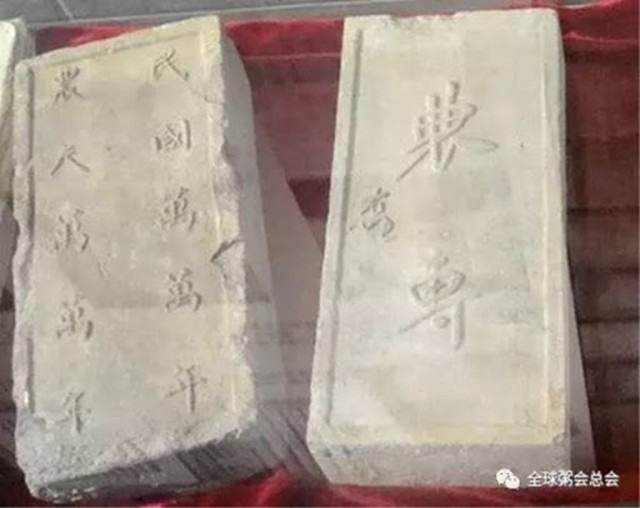 民國萬萬年
農人萬萬年
典專
全球粥会总会